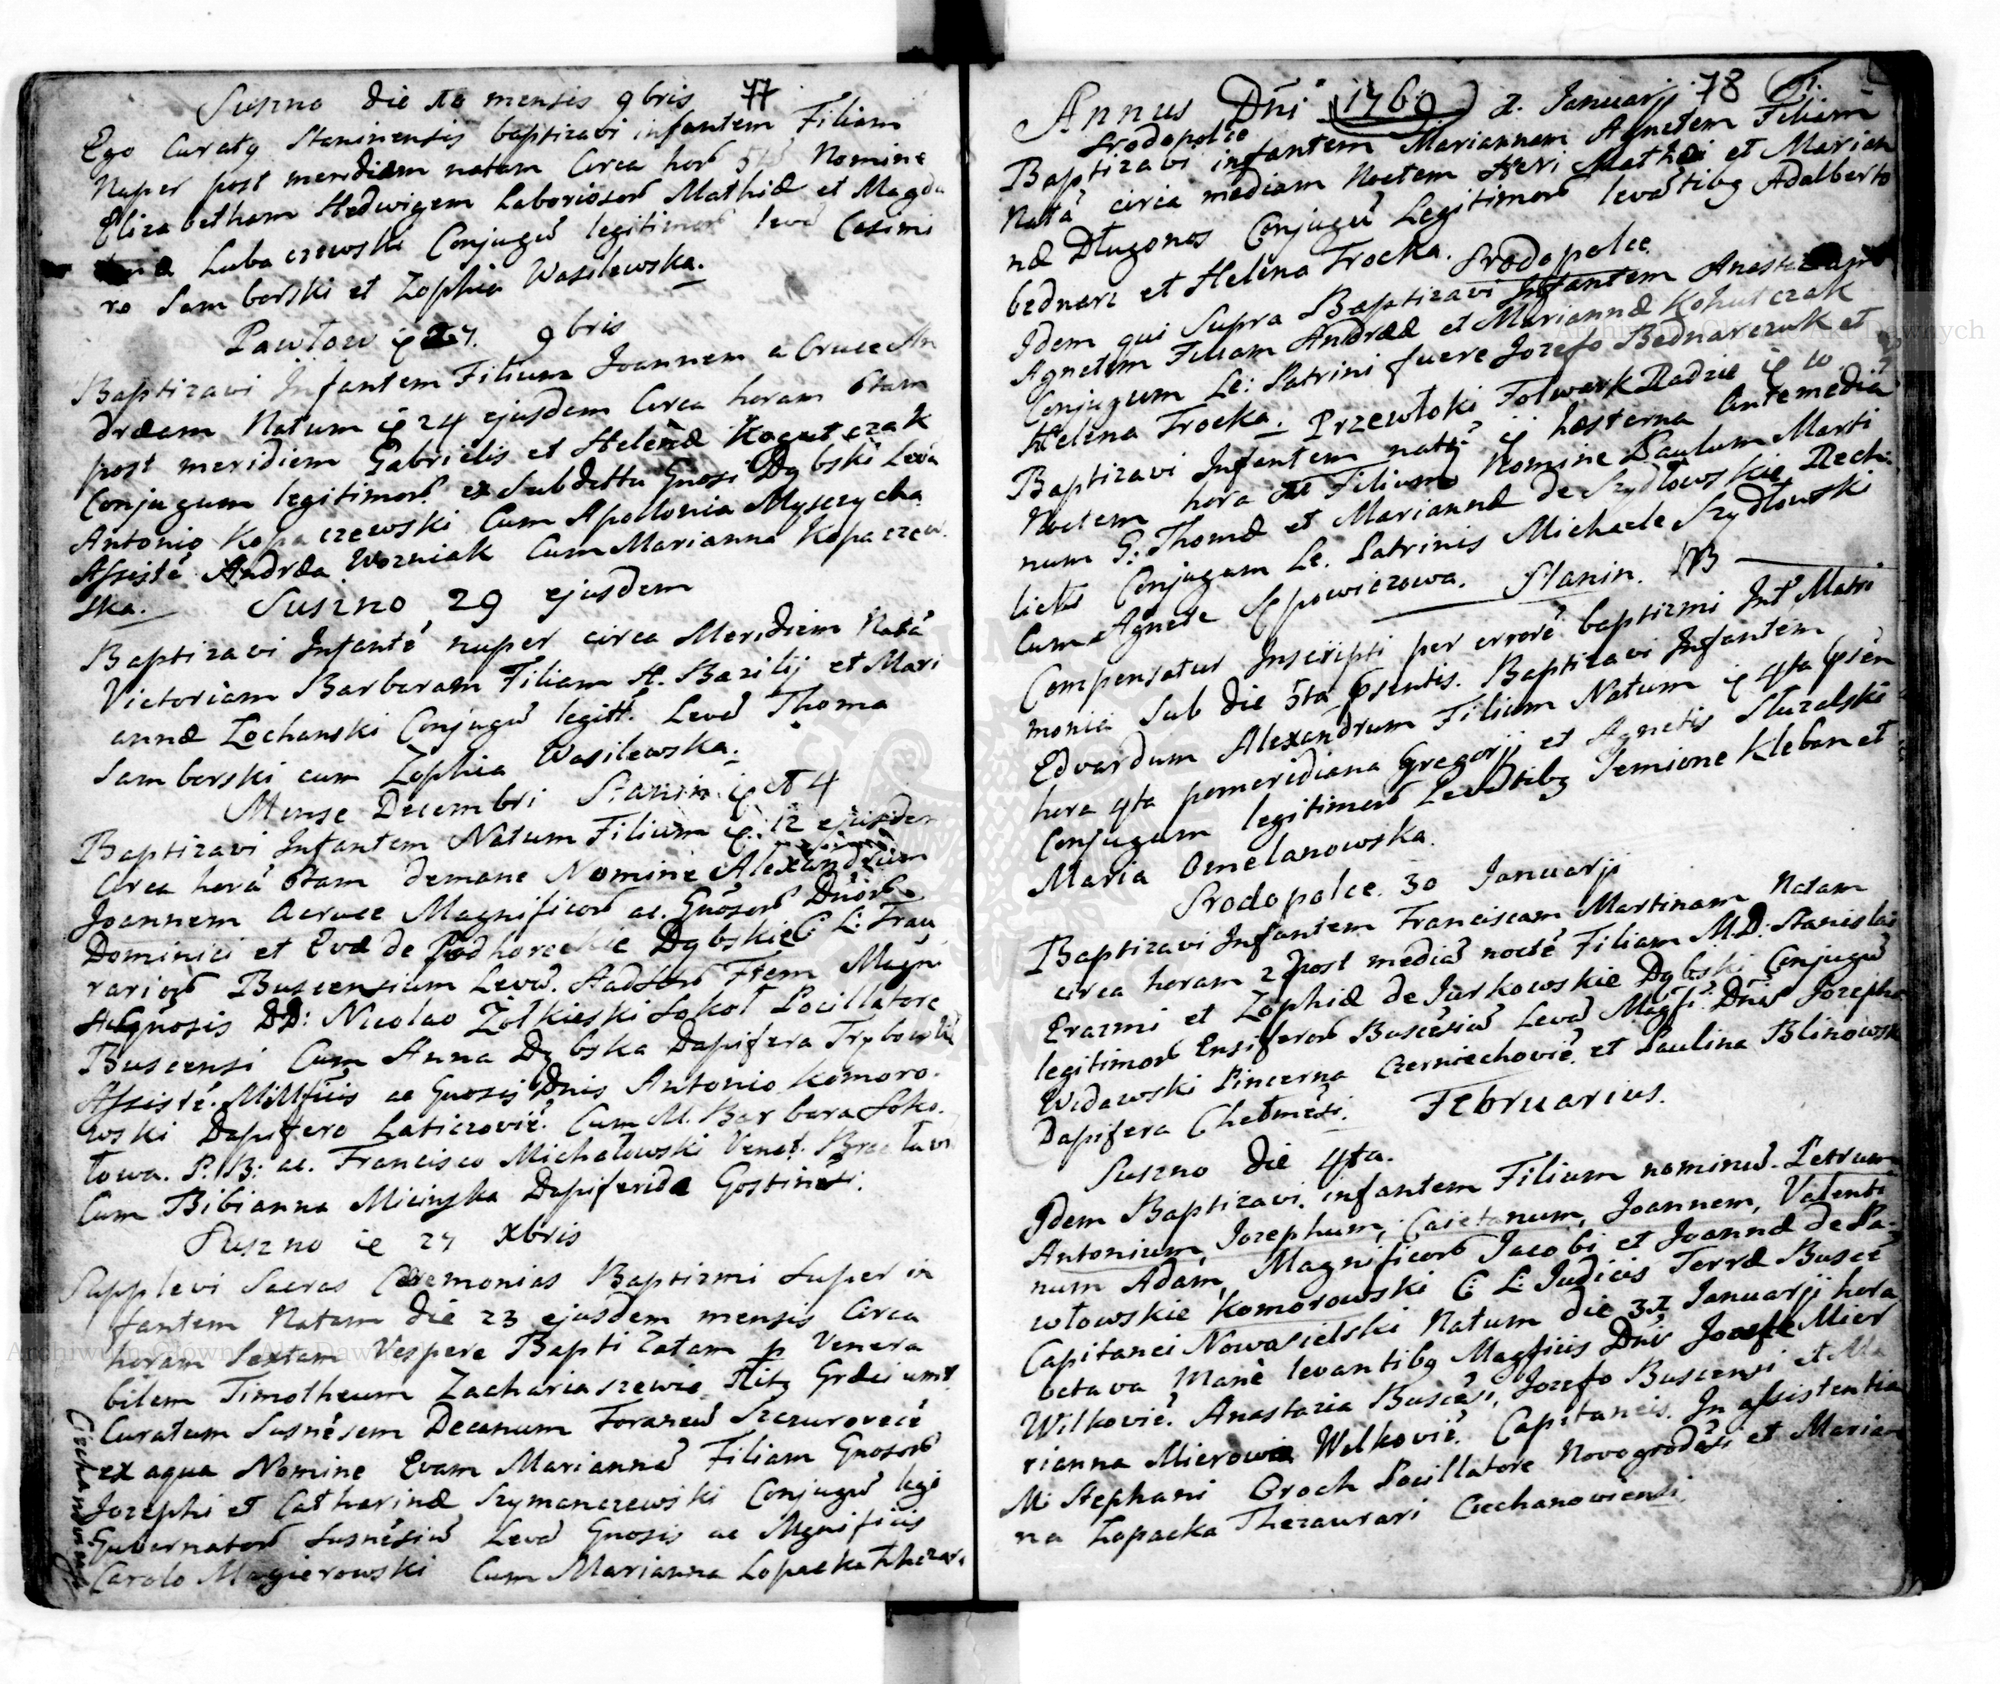 77
Suszno die 10 mensis 9bris
Ego Curatg Staninensis baptizavi infantem Filiam
Nuper post meridiem natam Circa hor 5tã Nomine
Elizabetham Hedwigem Laboriosorũ Mathiæ et Magda
Lubaczewski Conjugũ legitimorũ levã Casimi
ro Samborski et Zophia Wasilewska.
Pawłow 27. 9bris
Baptizavi Infantem Filium Joannem a Cruce An
dræam Natum 24 ejusdem Circa horam 8tam
post meridiem Gabrielis et Helenæ Kogutczak
Conjugum legitimorũ ex Subditta Gnosi Dąbski Levã
Antonio Kopaczewski Cum Apollonia Myszycha
Assistẽ Andræa Wozniak Cum Marianna Kopaczew
ska.
Suszno 29 ejusdem
Baptizavi Infantẽ nuper circa Meridiem Natã
Victoriam Barbaram Filiam H. Bazilij et Mari
annæ Zochanski Conjugũ legitt. Levã Thoma
Samborski cum Zophia Wasilewska.
Mense Decembri Stanin 14
Baptizavi Infantem Natum Filium 12 ejusdem
Circa horã 8tam demane Nomine Alexandrum
Joannem a cruce Magnificorũ ac Gnosorũ Dnorũ
Dominici et Evæ de Podhoreckie Dąbskie C. L. Thau
rariorũ Buscensium Levã.
Gnosis DD: Nicolao Żołkieski Sokoł Pocillatore
Buscensi Cum Anna Dąbska Dapifera Trębowlẽ
Assistẽ. MMficis ac Gnosis Dnis Antonio Komoro
wski Dapifero Laticzoviẽ. Cum M. Barbara Soko
łowa. P. B: ac. Francisco Michałowski Venat. Bracłavi
Cum Bibianna Micinska Dapiferida Gostinẽsi.
Suszno 27 Xbris
Supplevi Sacras Ceremonias Baptizmi Super in
fantem Natam die 23 ejusdem mensis Circa
horam Sextam Vespere Baptizatam p Venera
bilem Timotheum Zachariaszewic Ritg Græci unit
Curatum Susnẽsem Decanum Foraneũ Szczuroveciẽ
ex aqua Nomine Evam Mariannã Filiam Gnosorũ
Jozephi et Catharinæ Szymanczewski Conjugũ legi
Gubernatorũ Susnẽsiũ Levã Gnosis ac Mgnificis
Carolo Magierowski Cum Marianna Łopacka Thezar
78
Annus Dñi 1769 2. Januarij
Srodopolce
Baptizavi infantem Mariannam Agnetem Filiam
Natã circa mediam Noctem Heri Mathæi et Marian
næ Długonos Conjugũ Legitimorũ levãtibg Adalberto
bednarz et Helena Trocka. Srodopolce.
Idem qui Supra Baptizavi Infantem
Agnetem Filiam Andrææ et Mariannæ Kohutczak
Conjugum Le: Patrini fuere Jozefo Bednarczuk et
Helena Trocka. Przewłoki Folwark Radzie 10
Baptizavi Infantem natũ hæsterna Antemediã
Noctem hora Filium Nomine Paulum Marti
num G. Thomæ et Mariannæ de Szydłowskie Rech
lickũ Conjugum Le. Patrinis Michaele Szydłowski
Cum Agnete Stpowiczowa. Stanin. NB
Compensatur Inscripti per errorẽ baptizmi Int Matri
monia Sub die 5ta psentis. Baptizavi Infantem
Edvardum Alexandrum Filium Natum 4ta psen
hora 4ta pomeridiana Gregorij et Agnetis Sturalski
Conjugum legitimorũ Levãtibg Semione Kleban et
Maria Omelanowska.
Srodopolce. 30 Januarji
Baptizavi Infantem Franciscam Martinam Natam
circa horam 2 post mediã noctẽ Filiam M.D. Stanislai
Erazmi et Zophiæ de Jurkowskie Dąbski Conjugũ
legitimorũ Ensiferorũ Buscẽsiũ Levã Magfi: Dno Jozepho
Widawski Pincerna Czerniechoviẽ. et Paulina Blinowsk
Dapifera Chełmẽsi. Februarius.
Suszno die 4ta.
Idem Baptizavi infantem Filium nominũ. Petrum
Antonium, Jozephum, Caietanum, Joannem, Valenti
num Adam, Magnificorũ Jacobi et Joannæ de Pa
włowskie Komorowski C: L: Judicis Terræ Buscẽ
Capitanei Nowosielski Natum die 31 Januarji hora
octava Manẽ levantibg Magficis Dnis Jozefo Mier
Wilkoviẽ. Anastazia Buscẽsi, Jozefo Buscensi et Ma
rianna Mierowie Wilkoviẽ. Capitaneis. In assistentia
M. Stephani Groch Pocillatore Novogrodẽsi et Marian
na Łopacka Thezaurari Ciechanowiensi.
Ciechanowien
Archiwum Główne Akt Dawnych
Archiwum Główne Akt Dawnych